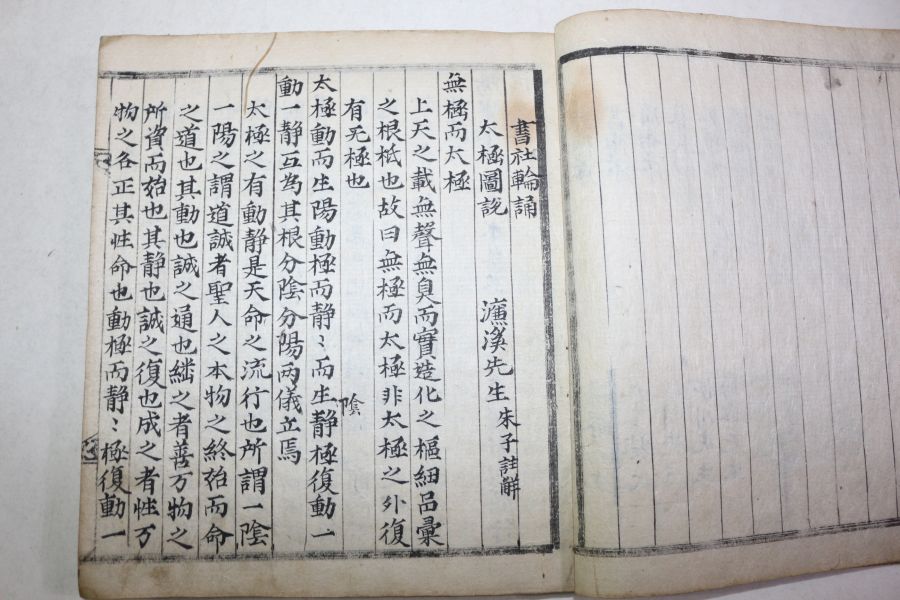 書社輪誦
太極圖説 濂溪先生 朱子註解
無極而太極
上天之載無聲無臭而實造化之樞細品彙
之根柢也故曰無極而太極非太極之外復
有无極也
太極動而生陽動極而静〻而生陰静極復動一
動一静互為其根分陰分陽兩儀立焉
太極之有動静是天命之流行也所謂一陰
一陽之謂道誠者聖人之本物之終始而命
之道也其動也誠之通也繼之者善万物之
所資而始也其静也誠之復也成之者性万
物之各正其性命也動極而静〻極復動一